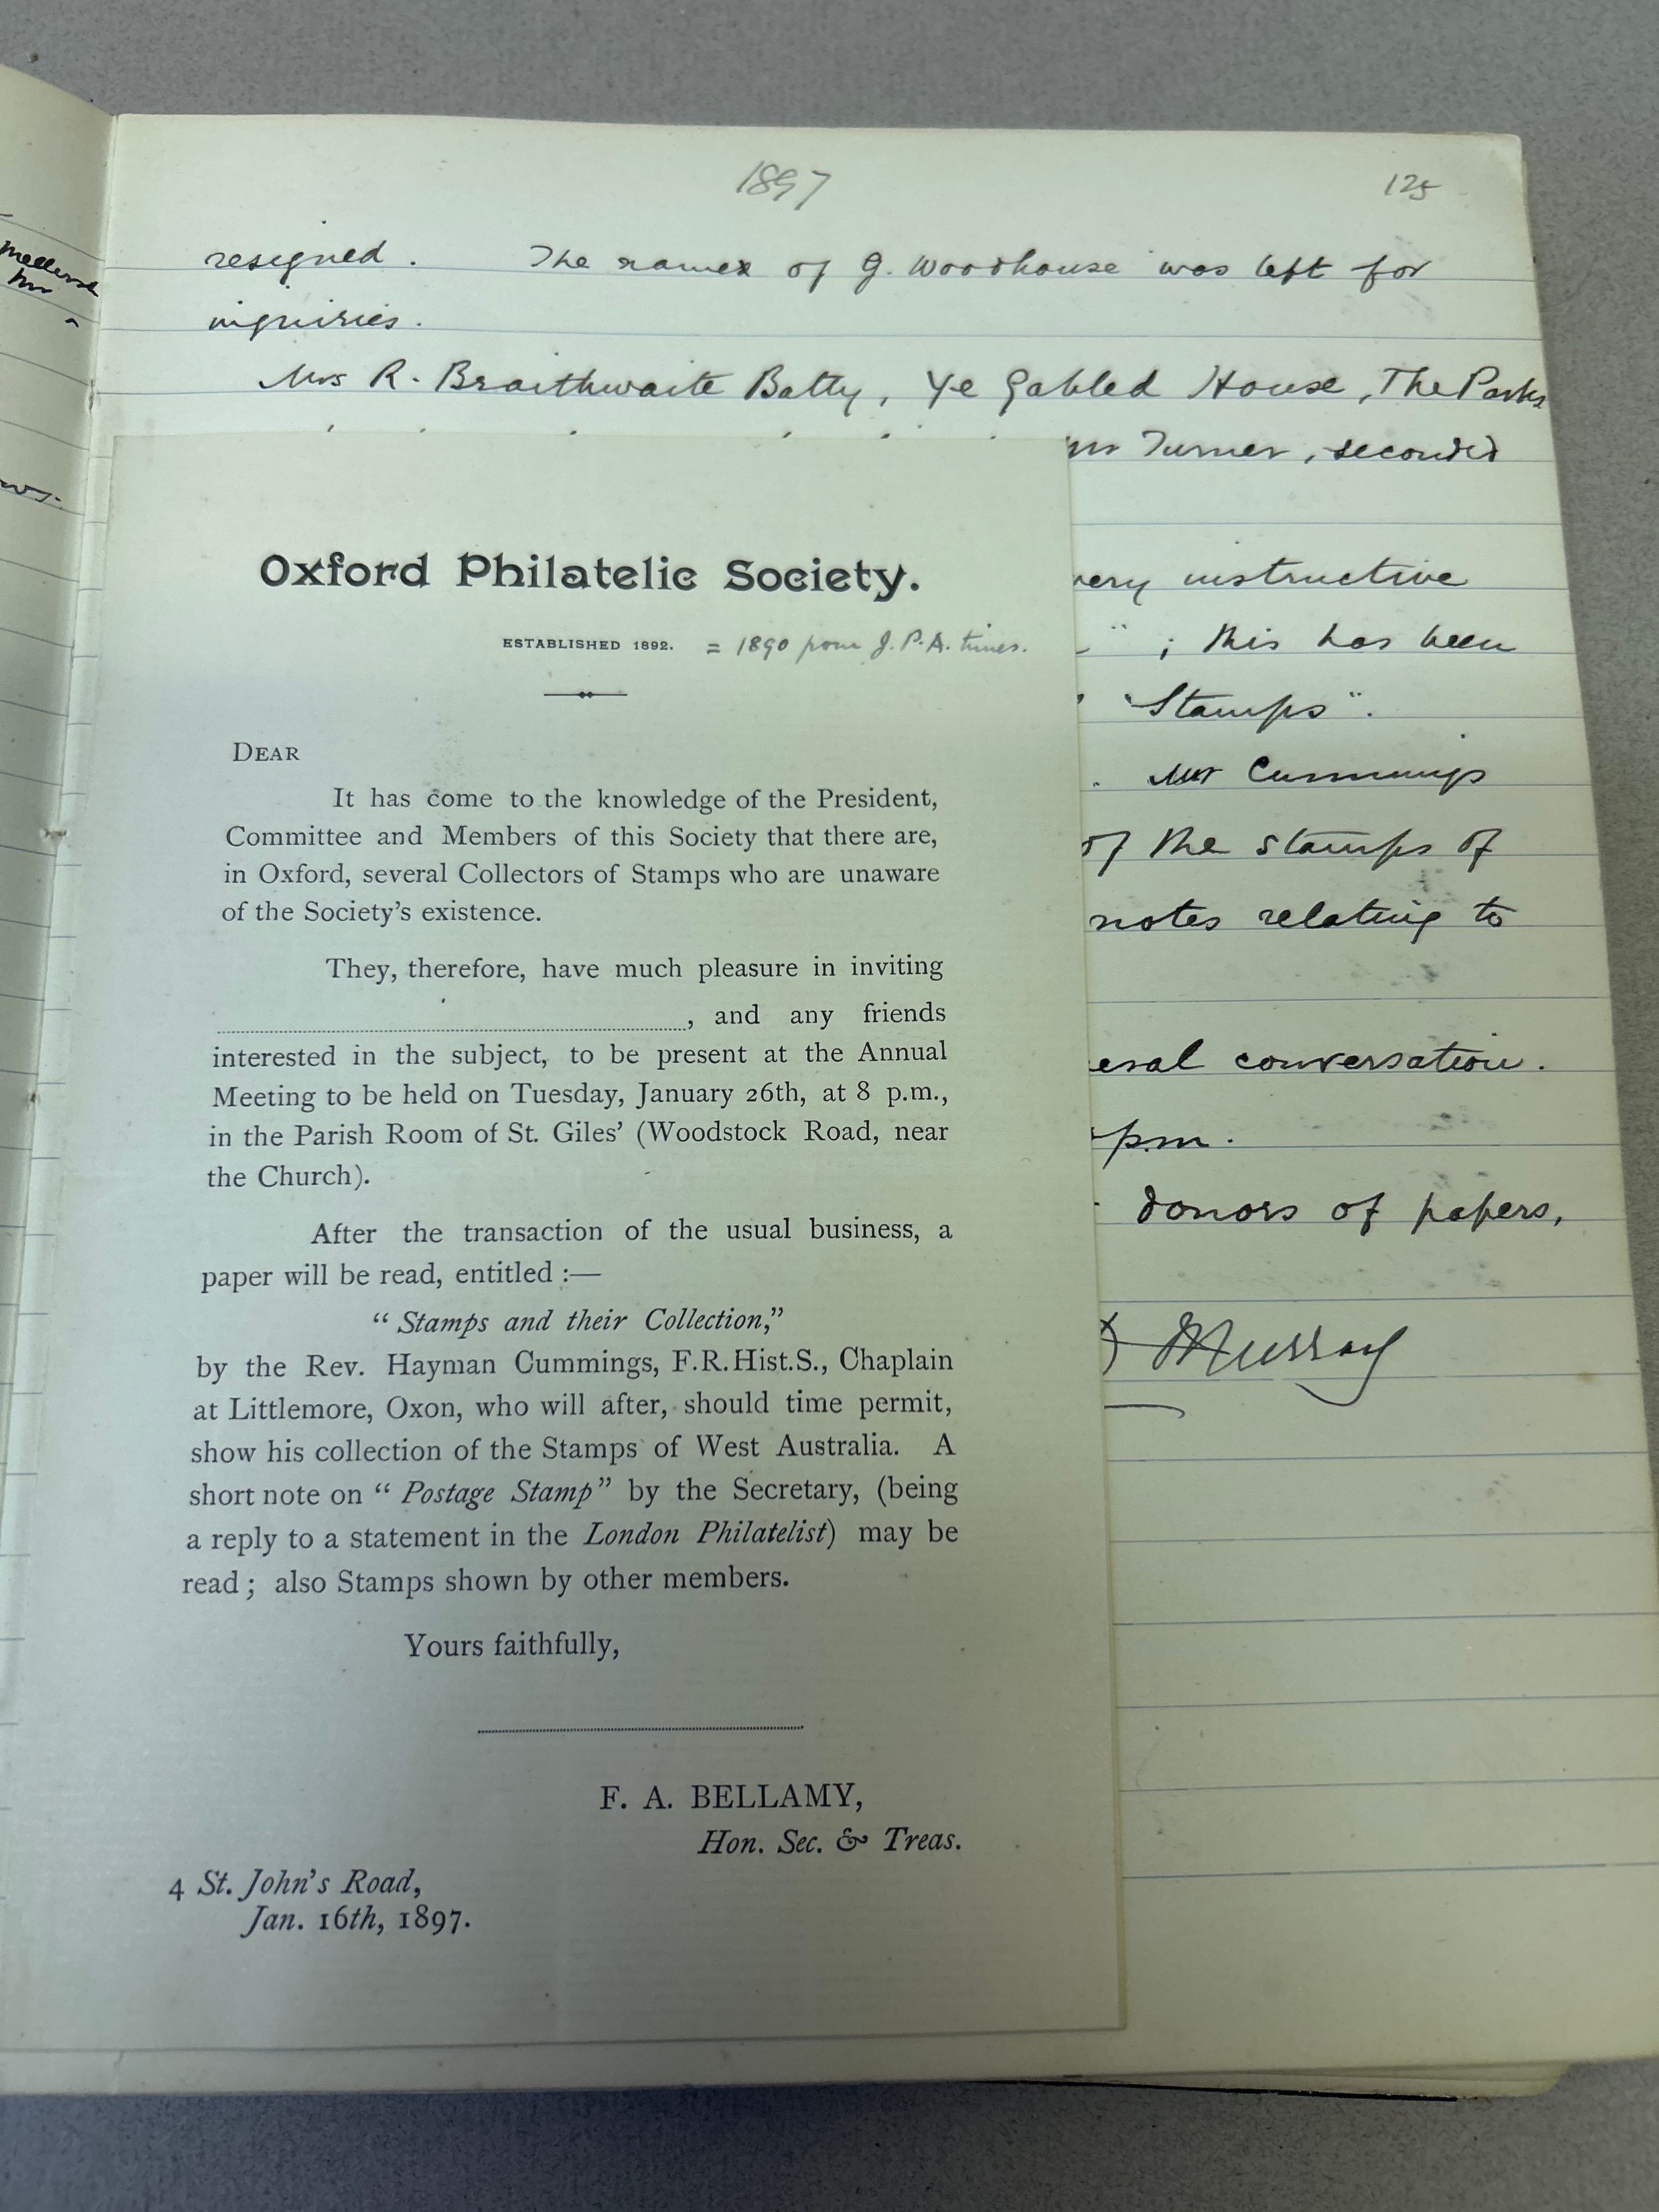 1897
125
resigned. The names of G. Woodhouse was left for
inquiries.
Mrs R. Braithwaite Batty, Ye Gabled House, The Parks
Mr Turner, seconded
very instructive
; this has been
"Stamps".
Mr Cummings
of the stamps of
notes relating to
eral conversation.
p.m.
donors of papers,
Murray
Oxford Philatelic Society.
ESTABLISHED 1892. = 1890 from J.P.A. times.
DEAR
It has come to the knowledge of the President,
Committee and Members of this Society that there are,
in Oxford, several Collectors of Stamps who are unaware
of the Society's existence.
They, therefore, have much pleasure in inviting
, and any friends
interested in the subject, to be present at the Annual
Meeting to be held on Tuesday, January 26th, at 8 p.m.,
in the Parish Room of St. Giles' (Woodstock Road, near
the Church).
After the transaction of the usual business, a
paper will be read, entitled :—
"Stamps and their Collection,"
by the Rev. Hayman Cummings, F.R.Hist.S., Chaplain
at Littlemore, Oxon, who will after, should time permit,
show his collection of the Stamps of West Australia. A
short note on "Postage Stamp" by the Secretary, (being
a reply to a statement in the London Philatelist) may be
read; also Stamps shown by other members.
Yours faithfully,
F. A. BELLAMY,
Hon. Sec. & Treas.
4 St. John's Road,
Jan. 16th, 1897.